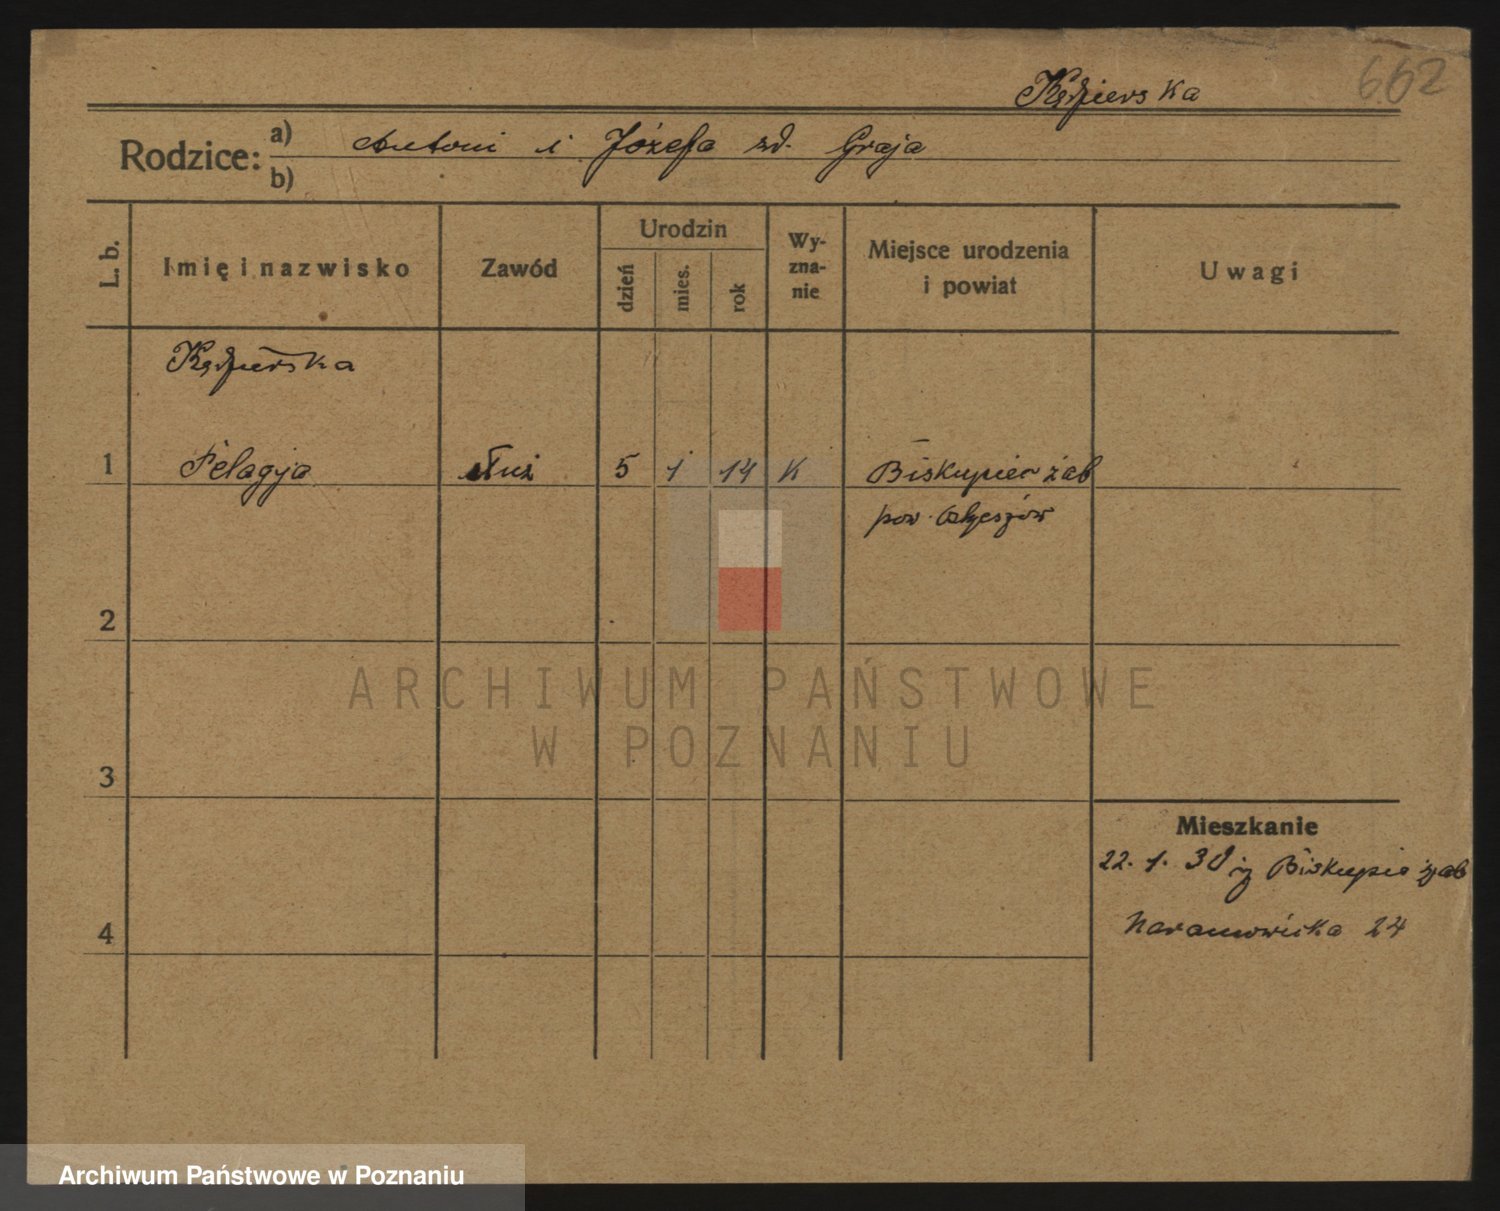 662
Kędzierska
Rodzice: a) Antoni i Józefa zd. Graja
b)
L. b.
Imię i nazwisko
Zawód
Urodzin
dzień
mies.
rok
Wy-
zna-
nie
Miejsce urodzenia
i powiat
Uwagi
Kędzierska
1 Pelagja służ 5 1 14 K Biskupice żab
pow.
2
ARCHIWUM PAŃSTWOWE
W POZNANIU
3
Mieszkanie
22. 1. 30 z Biskupic żab
4 Naramowicka 24
Archiwum Państwowe w Poznaniu